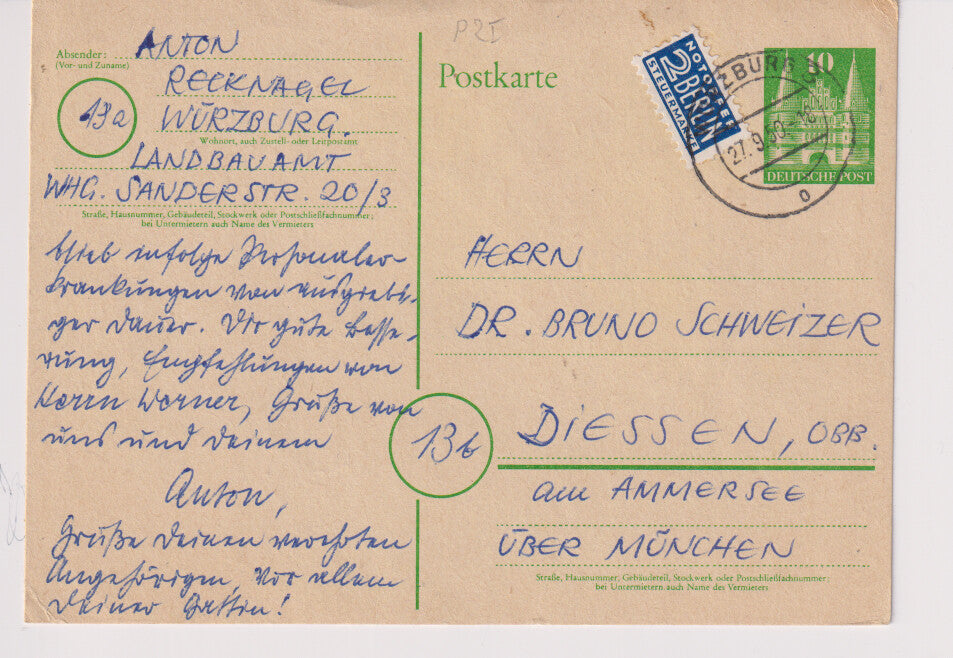 P2I
Absender:
(Vor- und Zuname)
ANTON
RECKNAGEL
13a
WÜRZBURG.
Wohnort, auch Zustell- oder Leitpostamt
LANDBAUAMT
WHG. SANDERSTR. 20/3
Straße, Hausnummer, Gebäudeteil, Stockwerk oder Postschließfachnummer;
bei Untermietern auch Name des Vermieters
blieb infolge Personaler-
krankungen von ausgiebi-
ger Dauer. Dir gute Besse-
rung, Empfehlungen von
Herrn Werner, Grüße von
uns und Deinem
Anton,
Grüße Deinen verehrten
Angehörigen, vor allem
Deiner Gattin!
Postkarte
NOTOPFER
2 BERLIN
STEUERMARKE
ZBURG
27.9.50
o
10
DEUTSCHE POST
HERRN
DR. BRUNO SCHWEIZER
13b
DIESSEN, OBB.
am AMMERSEE
ÜBER MÜNCHEN
Straße, Hausnummer, Gebäudeteil, Stockwerk oder Postschließfachnummer;
bei Untermietern auch Name des Vermieters